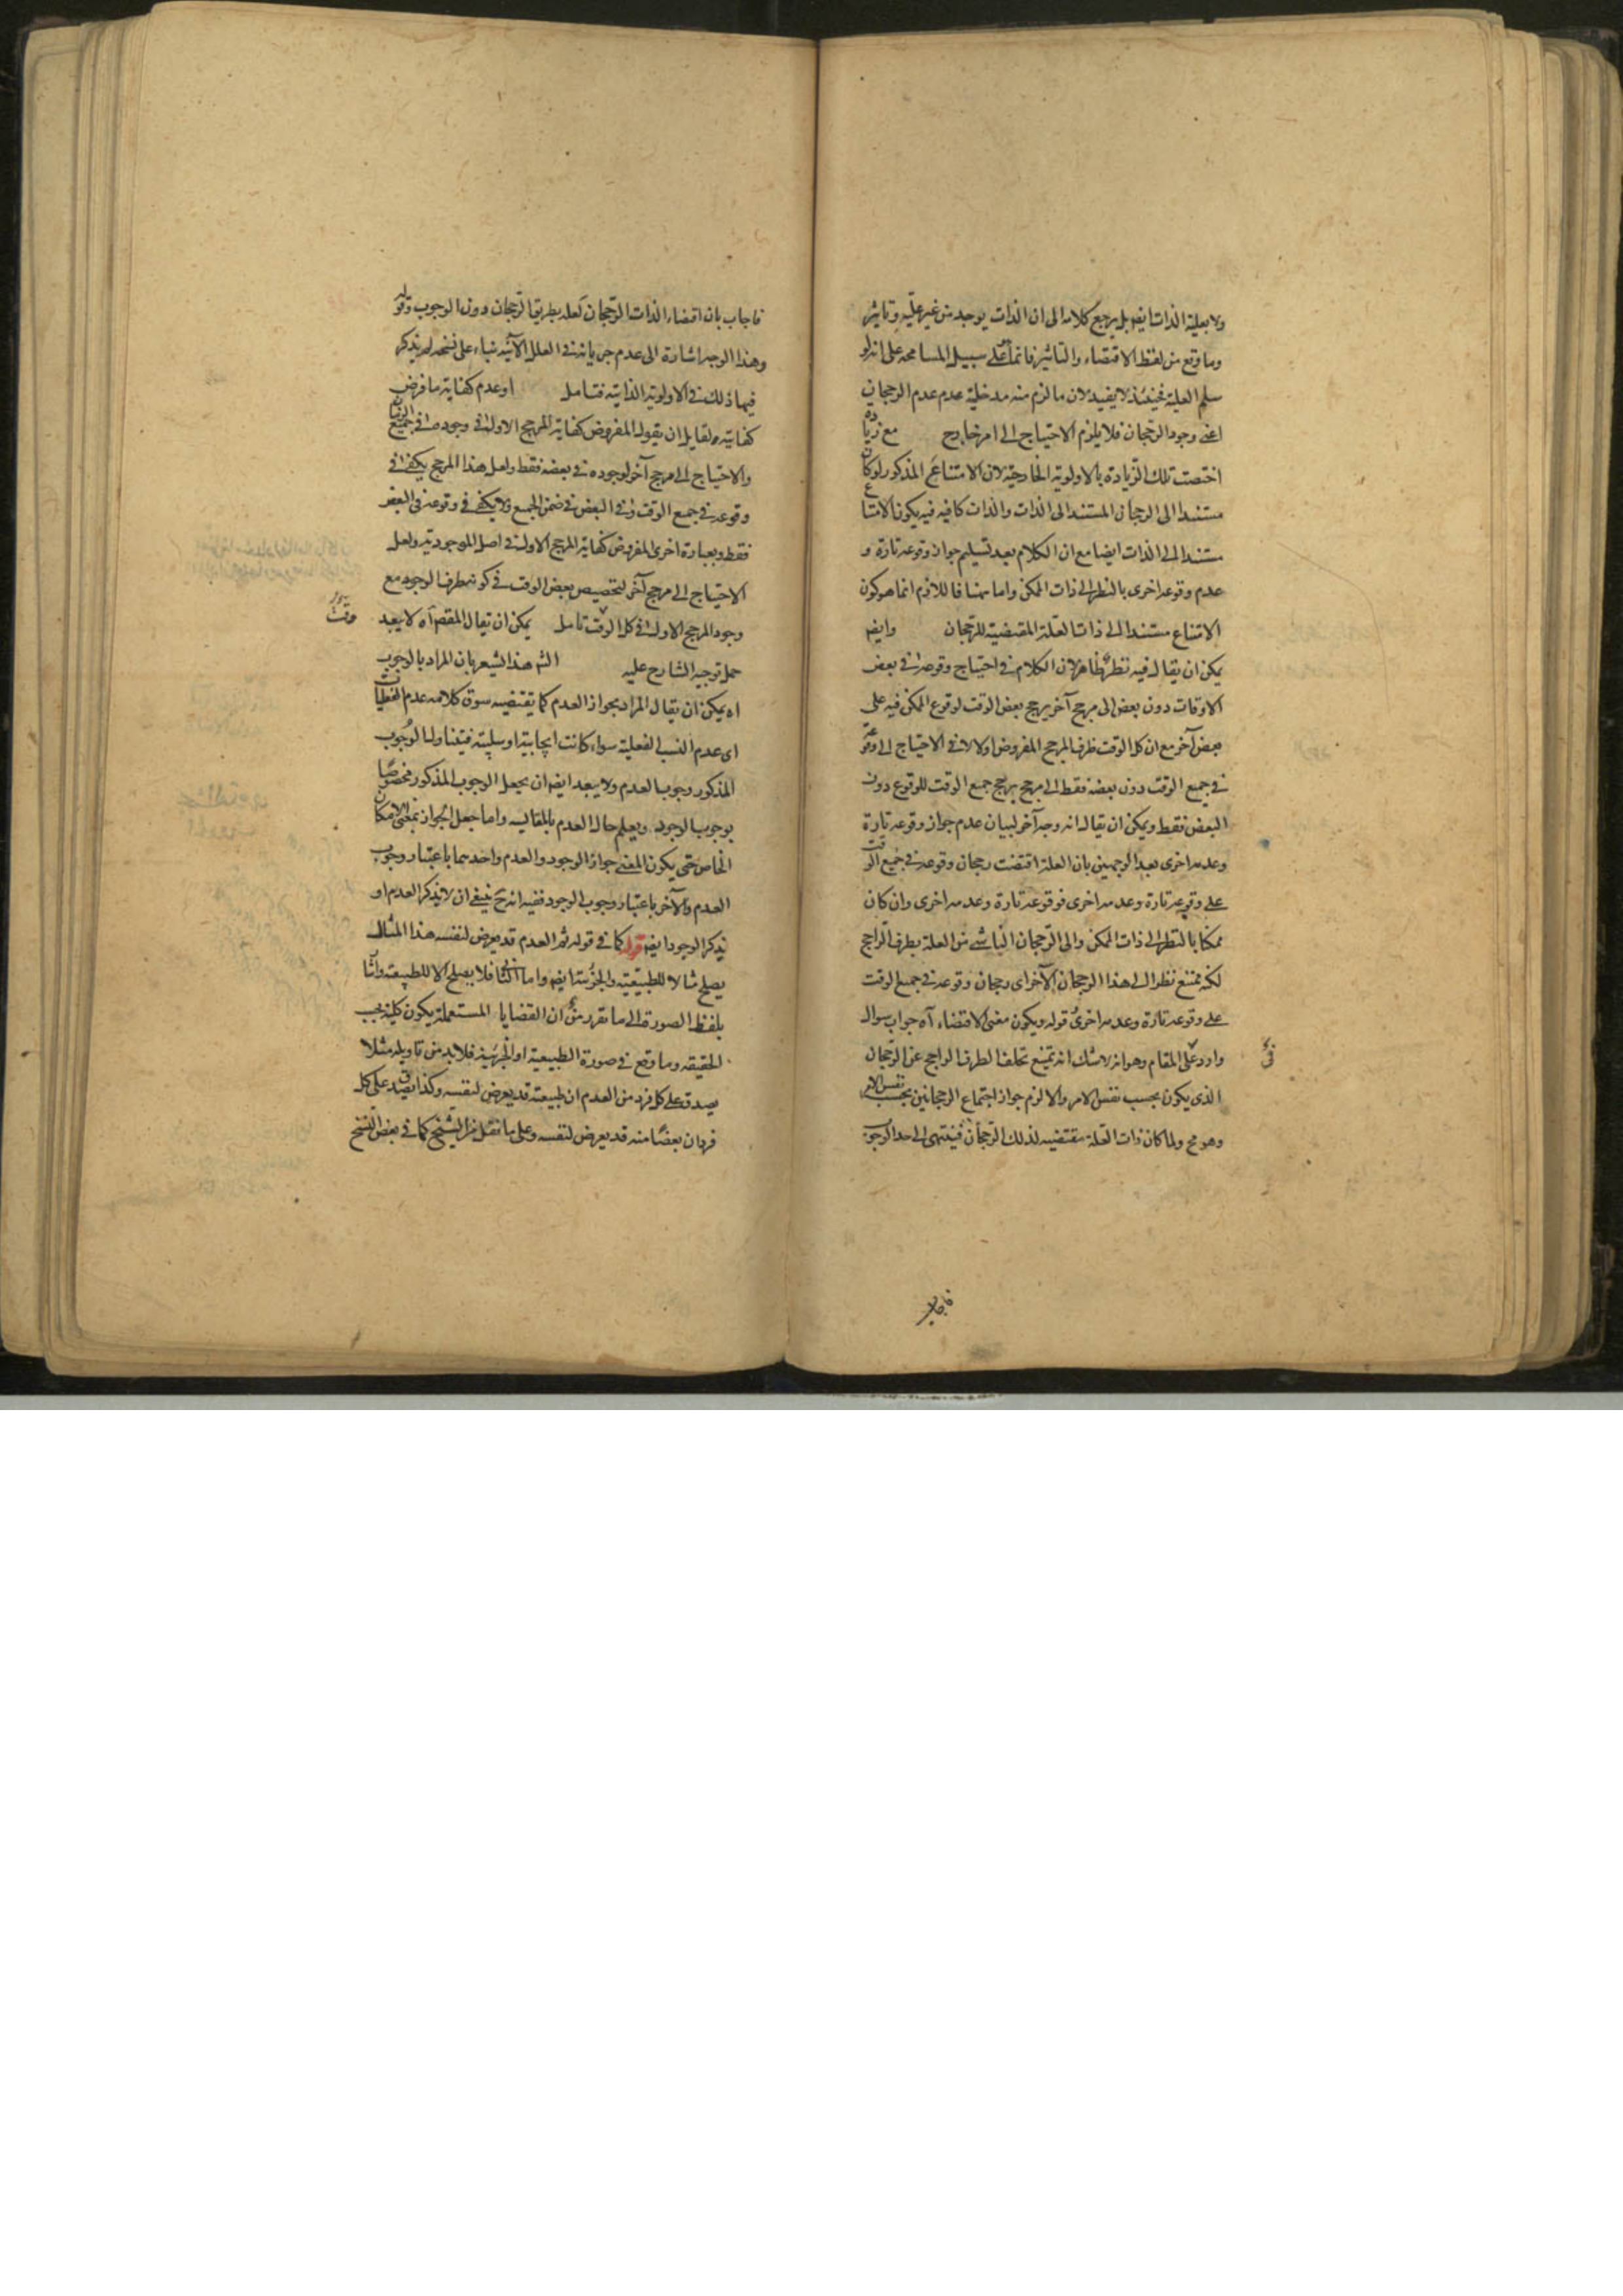 ولا بعلية الذات ايضا بل يرجع كلامه الى ان الذات يوجد من غير علية وتاثير
وما وقع من لفظ الاقتضاء والتاثير فانما على سبيل المسامحة على انه لو
سلم العلية فحينئذ لا يفيد لان ما لزم منه مدخلية عدم عدم الرجحان
اعنى وجود الرجحان فلا يلزم الاحتياج الى امر خارج مع زيادة
اختصت تلك الزيادة بالاولوية الخارجية لان الامتناع المذكور لو كان
مستندا الى الرجحان المستند الى الذات والذات كافية فيه يكون الامتناع
مستندا الى الذات ايضا مع ان الكلام بعد تسليم جواز وقوعه تارة و
عدم وقوعه اخرى بالنظر الى ذات الممكن واما هنا فاللازم انما هو كون
الامتناع مستندا الى ذات العلة المقتضية للرجحان وايضا
يمكن ان يقال فيه نظر ظاهر لان الكلام فى احتياج وقوعه فى بعض
الاوقات دون بعض الى مرجح آخر يرجح بعض الوقت لوقوع الممكن فيه على
بعض آخر مع ان كل الوقت ظرف المرجح المفروض اولا لا فى الاحتياج الى وقوعه
فى جميع الوقت دون بعضه فقط الى مرجح يرجح جميع الوقت للوقوع دون
البعض فقط ويمكن ان يقال انه وجه آخر لبيان عدم جواز وقوعه تارة
وعدمه اخرى بعد الوجهين بان العلة اقتضت رجحان وقوعه فى جميع الوقت
على وقوعه تارة وعدمه اخرى فوقوعه تارة وعدمه اخرى وان كان
ممكنا بالنظر الى ذات الممكن والى الرجحان الناشى من العلة بطرف الراجح
لكنه ممتنع نظرا الى هذا الرجحان الآخر اى رجحان وقوعه فى جميع الوقت
على وقوعه تارة وعدمه اخرى قوله ويكون معنى الاقتضاء آه جواب سوال
وارد على المقام وهو انه لا شك انه يمتنع تخلف الطرف الراجح عن الرجحان
الذى يكون بحسب نفس الامر والا لزم جواز اجتماع الرجحانين بحسب نفس الامر
وهو مح ولما كان ذات العلة مقتضية لذلك الرجحان فينتهى الى حد الوجوب
فاجاب
فاجاب بان اقتضاء الذات الرجحان كعله بطريق الرجحان دون الوجوب وقوله
وهذا الوجه اشارة الى عدم جريانه فى العلل الآتية بناء على نسخة لم يذكر
فيها ذلك فى الاولوية الذاتية فتامل او عدم كفاية ما فرض
كفايته ولقايل ان يقول المفروض كفاية المرجح الاول فى وجوده فى جميع الزمان
والاحتياج الى مرجح آخر لوجوده فى بعضه فقط ولعل هذا المرجح يكفى فى
وقوعه فى جميع الوقت وفى البعض فى ضمن الجميع ولا يكفى فى وقوعه فى البعض
فقط وبعبارة اخرى المفروض كفاية المرجح الاول فى اصل الموجودية ولعل
الاحتياج الى مرجح آخر لتخصيص بعض الوقت فى كونه طرف الوجود مع
وجود المرجح الاول فى كل الوقت تامل يمكن ان يقال المقصم آه لا يبعد
حمل توجيه الشارح عليه الثم هذا الشعر بان المراد بالوجوب
اه يمكن ان يقال المراد بجواز العدم كما يقتضيه سوق كلامه عدم الفعليات
اى عدم النسب الفعلية سواء كانت ايجابية او سلبية فيتناول الوجوب
المذكور وجوب العدم ولا يبعد ايضا ان يجعل الوجوب المذكور مخصوصا
بوجوب الوجود ويعلم حال العدم بالمقايسة واما جعل الجواز بمعنى الامكان
الخاص حتى يكون المعنى جواز الوجود والعدم واحدهما باعتبار وجوب
العدم والآخر باعتبار وجوب الوجود ففيه انه ح ينبغى ان لا يذكر العدم او
يذكر الوجود ايضا قوله كما فى قوله ثم العدم قد يعرض لنفسه هذا المثال
يصلح مثالا للطبيعية والجزئية ايضا واما الثانى فلا يصلح الا للطبيعة وآتا
بلفظ الصورة الى ما تقرر من ان القضايا المستعملة يكون كلية بحسب
الحقيقة وما وقع فى صورة الطبيعية او الجزئية فلا بد من تاويله مثلا
يصدق على كل فرد من العدم ان طبيعته قد يعرض لنفسه وكذا يصدق على كل
فرد ان بعضا منه قد يعرض لنفسه وعلى ما نقل من الشيخ كما فى بعض النسخ